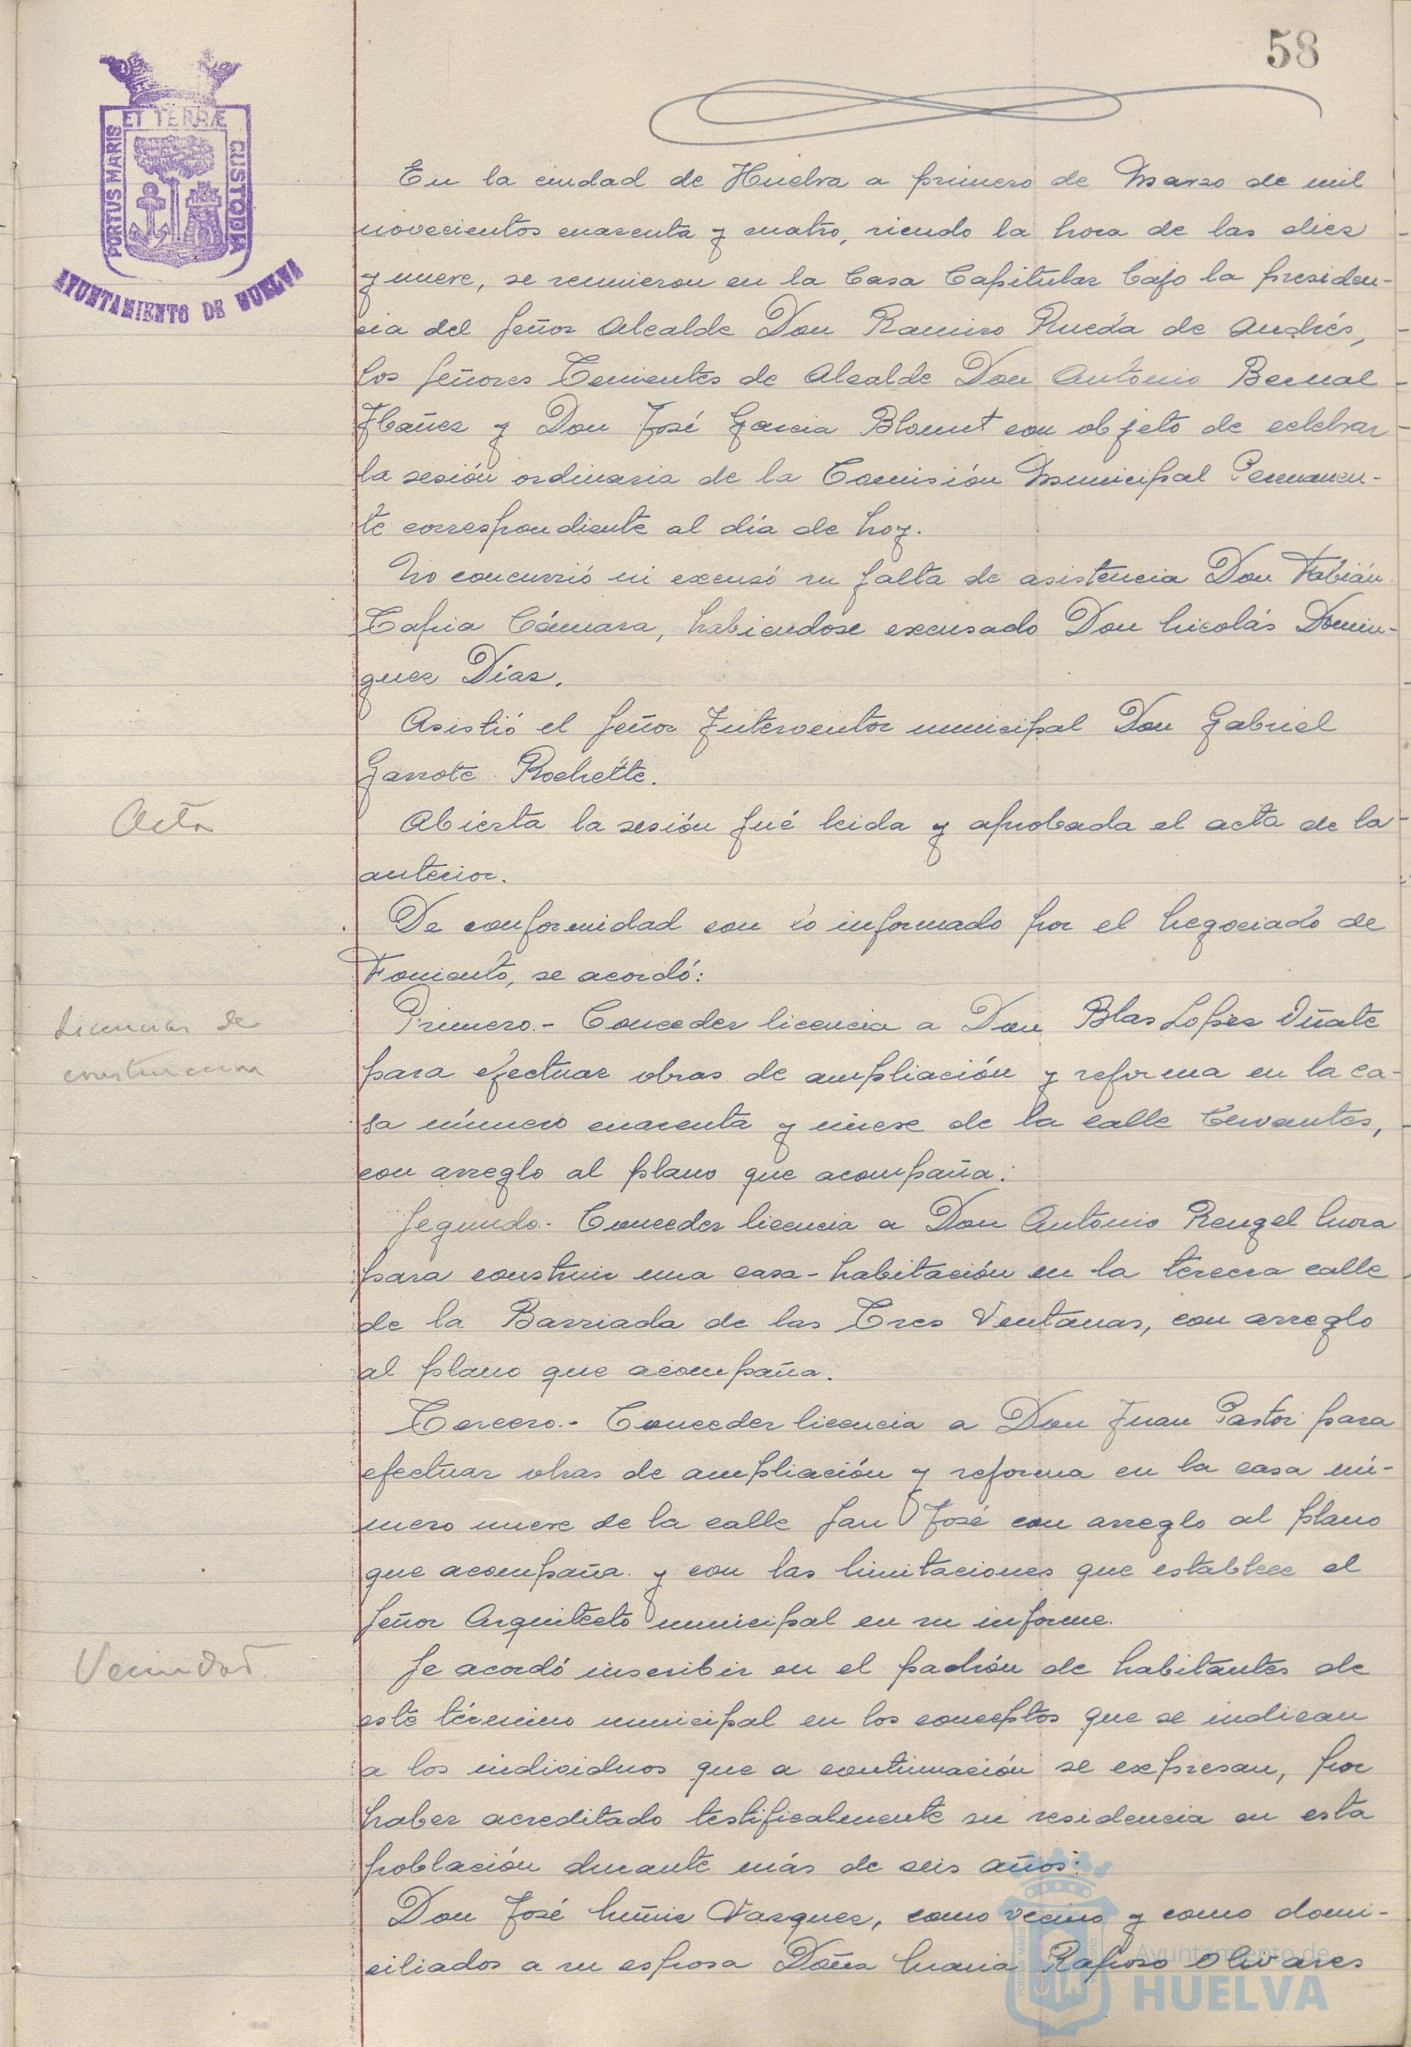 58
ET TERRÆ
PORTUS MARIS
CUSTODIA
AYUNTAMIENTO DE HUELVA
En la ciudad de Huelva a primero de Marzo de mil
novecientos cuarenta y cuatro, siendo la hora de las diez
y nueve, se reunieron en la Casa Capitular bajo la presiden-
cia del Señor Alcalde Don Ramiro Rueda de Andrés,
los Señores Tenientes de Alcalde Don Antonio Bernal
Ibañez y Don José García Blount con objeto de celebrar
la sesión ordinaria de la Comisión Municipal Permanen-
te correspondiente al día de hoy.
No concurrió ni excusó su falta de asistencia Don Fabián
Tapia Cámara, habiendose excusado Don Nicolás Domin-
guez Díaz.
Asistió el Señor Interventor municipal Don Gabriel
Garrote Rochette.
Acta
Abierta la sesión fué leida y aprobada el acta de la
anterior.
De conformidad con lo informado por el Negociado de
Fomento, se acordó:
Licencias de
construccion
Primero.- Conceder licencia a Don Blas Lopez Oñate
para efectuar obras de ampliación y reforma en la ca-
sa número cuarenta y nueve de la calle Cervantes,
con arreglo al plano que acompaña.
Segundo.- Conceder licencia a Don Antonio Rengel Mora
para construir una casa-habitación en la tercera calle
de la Barriada de las Tres Ventanas, con arreglo
al plano que acompaña.
Tercero.- Conceder licencia a Don Juan Pastor para
efectuar obras de ampliación y reforma en la casa nú-
mero nueve de la calle San José con arreglo al plano
que acompaña y con las limitaciones que establece el
Señor Arquitecto municipal en su informe.
Vecindad
Se acordó inscribir en el padrón de habitantes de
este término municipal en los conceptos que se indican
a los individuos que a continuación se expresan, por
haber acreditado testificalmente su residencia en esta
población durante más de seis años:
Don José Vazquez, como vecino y como domi-
ciliados a su esposa Doña Maria Raposo Olivares
Ayuntamiento de
HUELVA